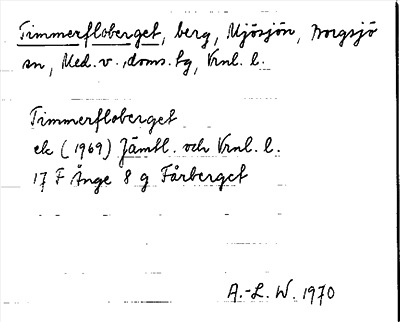 Timmerfloberget, berg, Mjösjön, Borgsjö
sn, Med. v. doms. tg, Vrnl. l.
Timmerfloberget
ek (1969) Jämtl. och Vrnl. l.
17 F Ånge 8 g Fårberget
A.-L. W. 1970